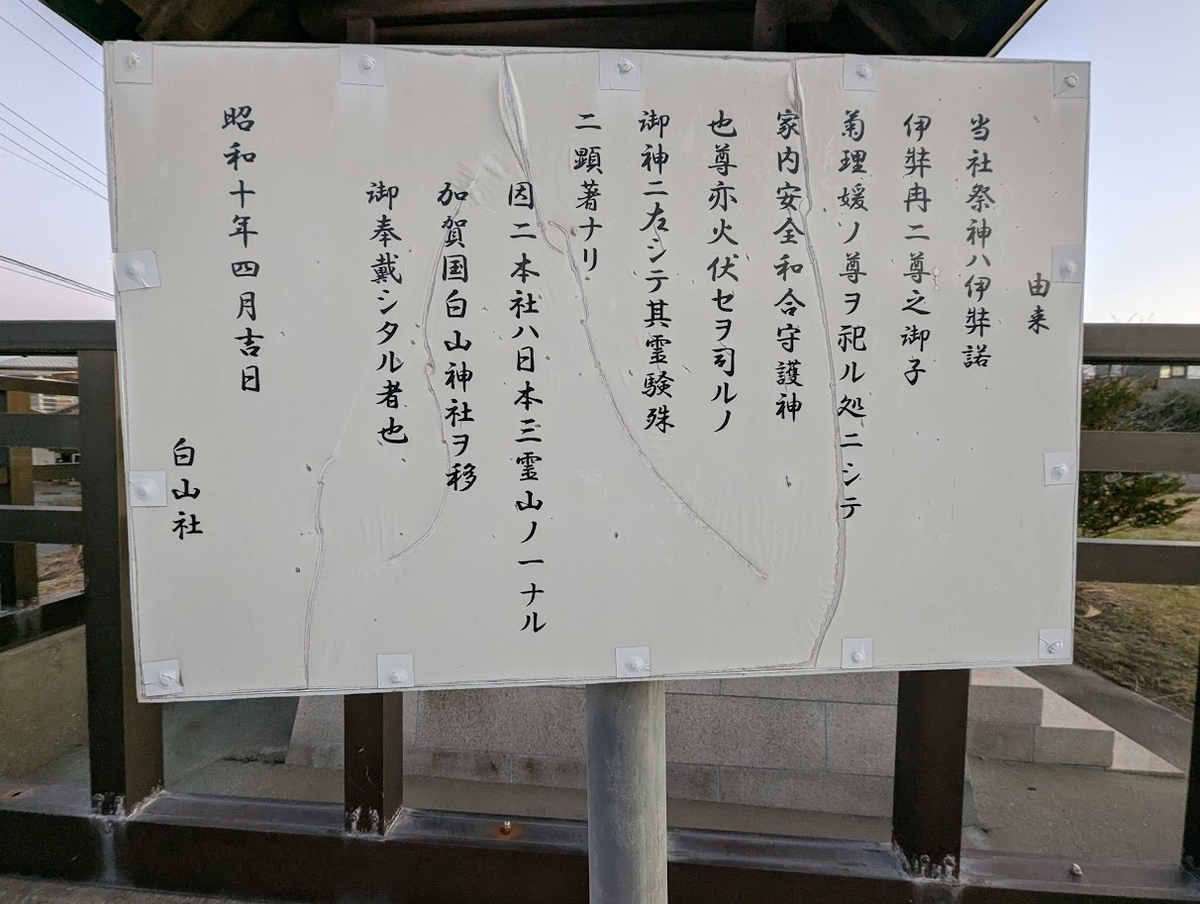 由来
当社祭神ハ伊弉諾
伊弉冉二尊之御子
菊理媛ノ尊ヲ祀ル処ニシテ
家内安全和合守護神
也尊亦火伏セヲ司ルノ
御神ニ在シテ其霊験殊
ニ顕著ナリ
因ニ本社ハ日本三霊山ノ一ナル
加賀国白山神社ヲ移
御奉戴シタル者也
昭和十年四月吉日
白山社